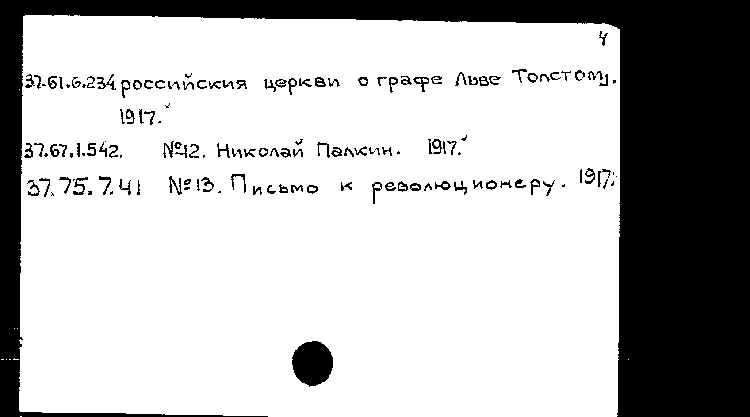 4
37.61.6.234 российския церкви о графе Льве Толстом.
1917.
37.67.1.542. №12. Николай Палкин. 1917.
37.75.7.41 №13. Письмо к революционеру. 1917.